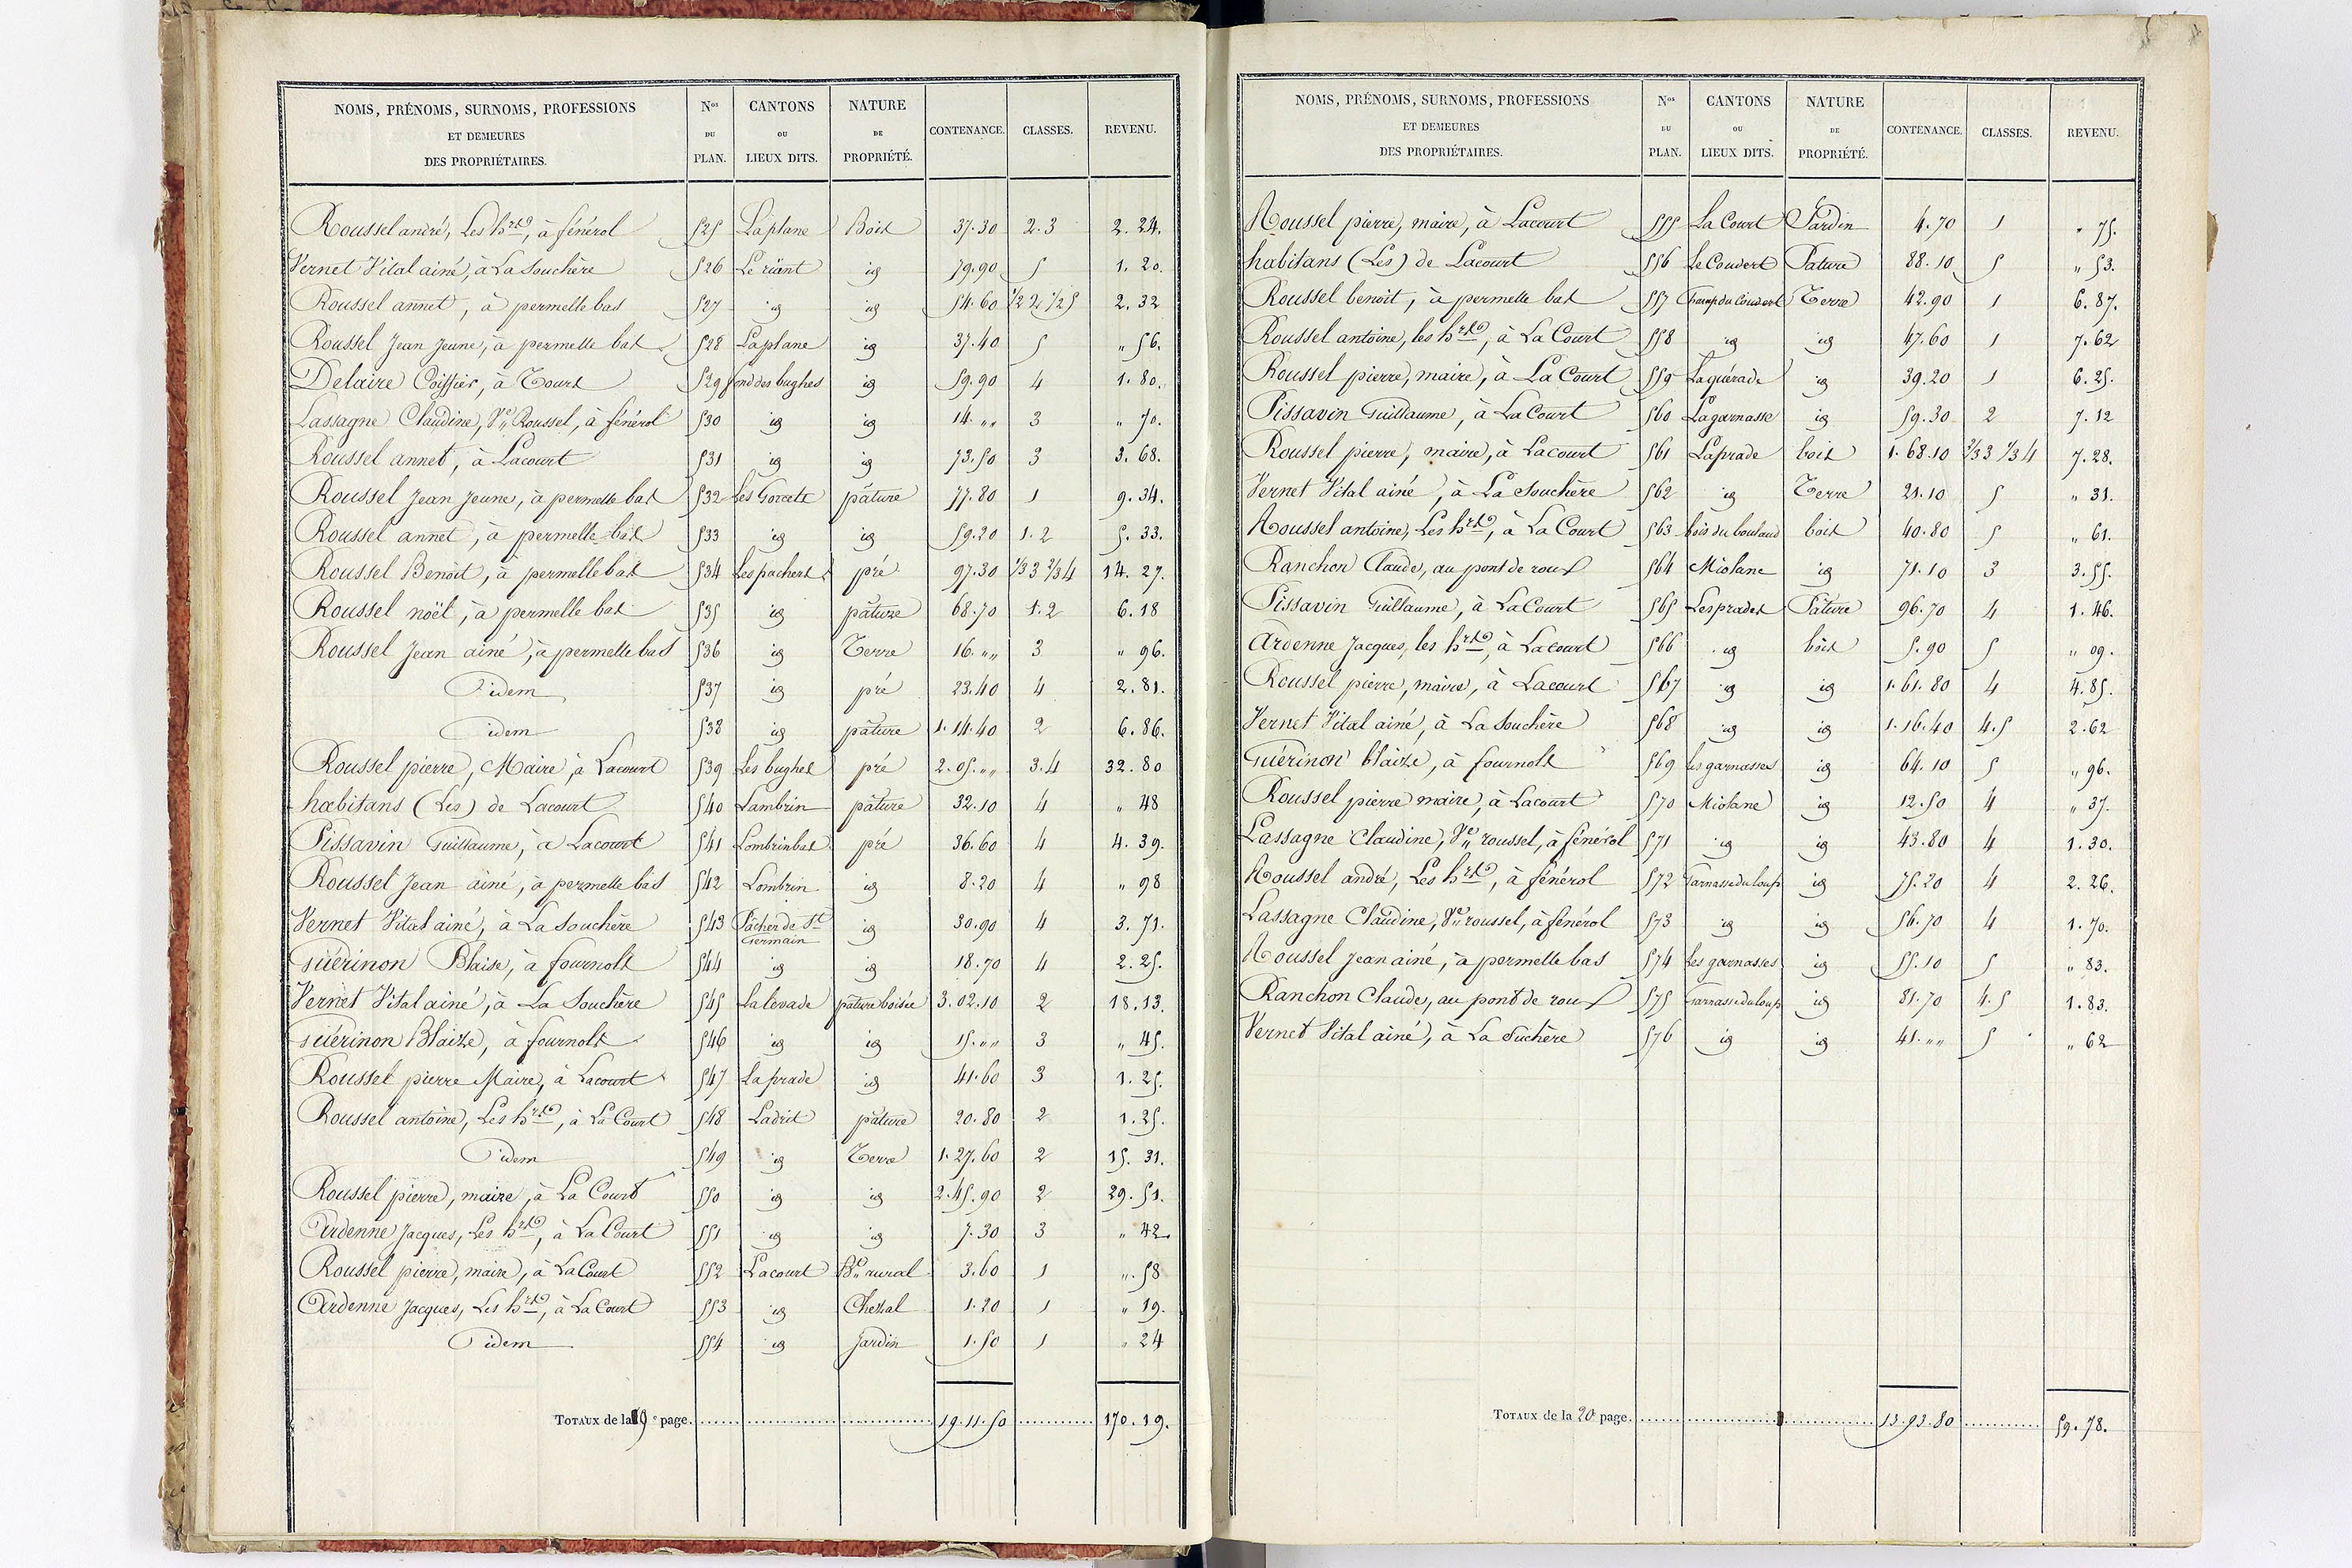 NOMS, PRÉNOMS, SURNOMS, PROFESSIONS ET DEMEURES DES PROPRIÉTAIRES. Nos DU PLAN. CANTONS OU LIEUX DITS. NATURE DE PROPRIÉTÉ. CONTENANCE. CLASSES. REVENU.
Roussel andré, Les hrs, à fénérol 525 Laplane Bois 37.30 2.3 2.24.
Vernet Vital ainé, à La Souchère 526 Le riant id 79.90 5 1.20.
Roussel annet, à permelle bas 527 id id 54.60 1/2 2 1/2 5 2.32
Roussel Jean Jeune, à permelle bas 528 Laplane id 37.40 5 " 56.
Delaire Coiffier, à Tours 529 fond des bughes id 59.90 4 1.80.
Lassagne Claudine, Ve Roussel, à fénérol 530 id id 14. " " 3 " 70.
Roussel annet, à Lacourt 531 id id 73.50 3 3.68.
Roussel Jean Jeune, à permelle bas 532 Les pature 77.80 1 9.34.
Roussel annet, à permelle bas 533 id id 59.20 1.2 5.33.
Roussel Benoit, à permelle bas 534 Les pachers pré 97.30 1/3 3 2/3 4 14.27.
Roussel noël, à permelle bas 535 id pâture 68.70 1.2 6.18
Roussel Jean ainé, à permelle bas 536 id Terre 16. " " 3 " 96.
idem 537 id pré 23.40 4 2.81.
idem 538 id pâture 1.14.40 2 6.86.
Roussel pierre, Maire, à Lacourt 539 Les bughes pré 2.05. " " 3.4 32.80
habitans (Les) de Lacourt 540 Lambrin pâture 32.10 4 " 48
Pissavin Guillaume, à Lacourt 541 Lombrin bas pré 36.60 4 4.39.
Roussel Jean ainé, à permelle bas 542 Lombrin id 8.20 4 " 98
Vernet Vital ainé, à La Souchère 543 Pâcher de St Germain id 30.90 4 3.71.
Guérinon Blaise, à fournols 544 id id 18.70 4 2.25.
Vernet Vital ainé, à La Souchère 545 La levade pature boisée 3.02.10 2 18.13.
Guérinon Blaize, à fournols 546 id id 15. " " 3 " 45.
Roussel pierre Maire, à Lacourt 547 La prade id 41.60 3 1.25.
Roussel antoine, Les hrs, à La Court 548 Ladrit pâture 20.80 2 1.25.
idem 549 id Terre 1.27.60 2 15.31.
Roussel pierre, maire, à La Court 550 id id 2.45.90 2 29.51.
Ardenne Jacques, Les hrs, à La Court 551 id id 7.30 3 " 42.
Roussel pierre, maire, à La Court 552 Lacourt Bt rural 3.60 1 " 58
Ardenne Jacques, Les hrs, à La Court 553 id Chezal 1.20 1 " 19.
idem 554 id Jardin 1.50 1 " 24
TOTAUX de la 19e page. 19.11.50 170.19.
NOMS, PRÉNOMS, SURNOMS, PROFESSIONS ET DEMEURES DES PROPRIÉTAIRES. Nos DU PLAN. CANTONS OU LIEUX DITS. NATURE DE PROPRIÉTÉ. CONTENANCE. CLASSES. REVENU.
Roussel pierre, maire, à Lacourt 555 La Court Jardin 4.70 1 " 75.
habitans (Les) de Lacourt 556 Le Coudert Pature 88.10 5 " 53.
Roussel benoit, à permelle bas 557 Champ du Coudert Terre 42.90 1 6.87.
Roussel antoine, les hrs, à La Court 558 id id 47.60 1 7.62
Roussel pierre, maire, à La Court 559 Laguérade id 39.20 1 6.25.
Pissavin Guillaume, à La Court 560 Lagarnasse id 59.30 2 7.12
Roussel pierre, maire, à Lacourt 561 Laprade bois 1.68.10 2/3 3 1/3 4 7.28.
Vernet Vital ainé, à La Souchère 562 id Terre 21.10 5 " 31.
Roussel antoine, Les hrs, à La Court 563 bois du boulaud bois 40.80 5 " 61.
Ranchon Claude, au pont de roux 564 Miolane id 71.10 3 3.55.
Pissavin Guillaume, à La Court 565 Les prades Pâture 96.70 4 1.46.
Ardenne Jacques, les hrs, à Lacourt 566 id bois 5.90 5 " 09.
Roussel pierre, maire, à Lacourt 567 id id 1.61.80 4 4.85.
Vernet Vital ainé, à La Souchère 568 id id 1.16.40 4.5 2.62
Guérinon Blaize, à fournols 569 Les garnasses id 64.10 5 " 96.
Roussel pierre maire, à Lacourt 570 Miolane id 12.50 4 " 37.
Lassagne Claudine, Ve roussel, à fénérol 571 id id 43.80 4 1.30.
Roussel andré, Les hrs, à fénérol 572 Garnasse du loup id 75.20 4 2.26.
Lassagne Claudine, Ve roussel, à fénérol 573 id id 56.70 4 1.70.
Roussel Jean ainé, à permelle bas 574 Les garnasses id 55.10 5 " 83.
Ranchon Claude, au pont de roux 575 Garnasse du loup id 81.70 4.5 1.83.
Vernet Vital ainé, à La Suchère 576 id id 41. " " 5 " 62
TOTAUX de la 20 page. 13.93.80 59.78.